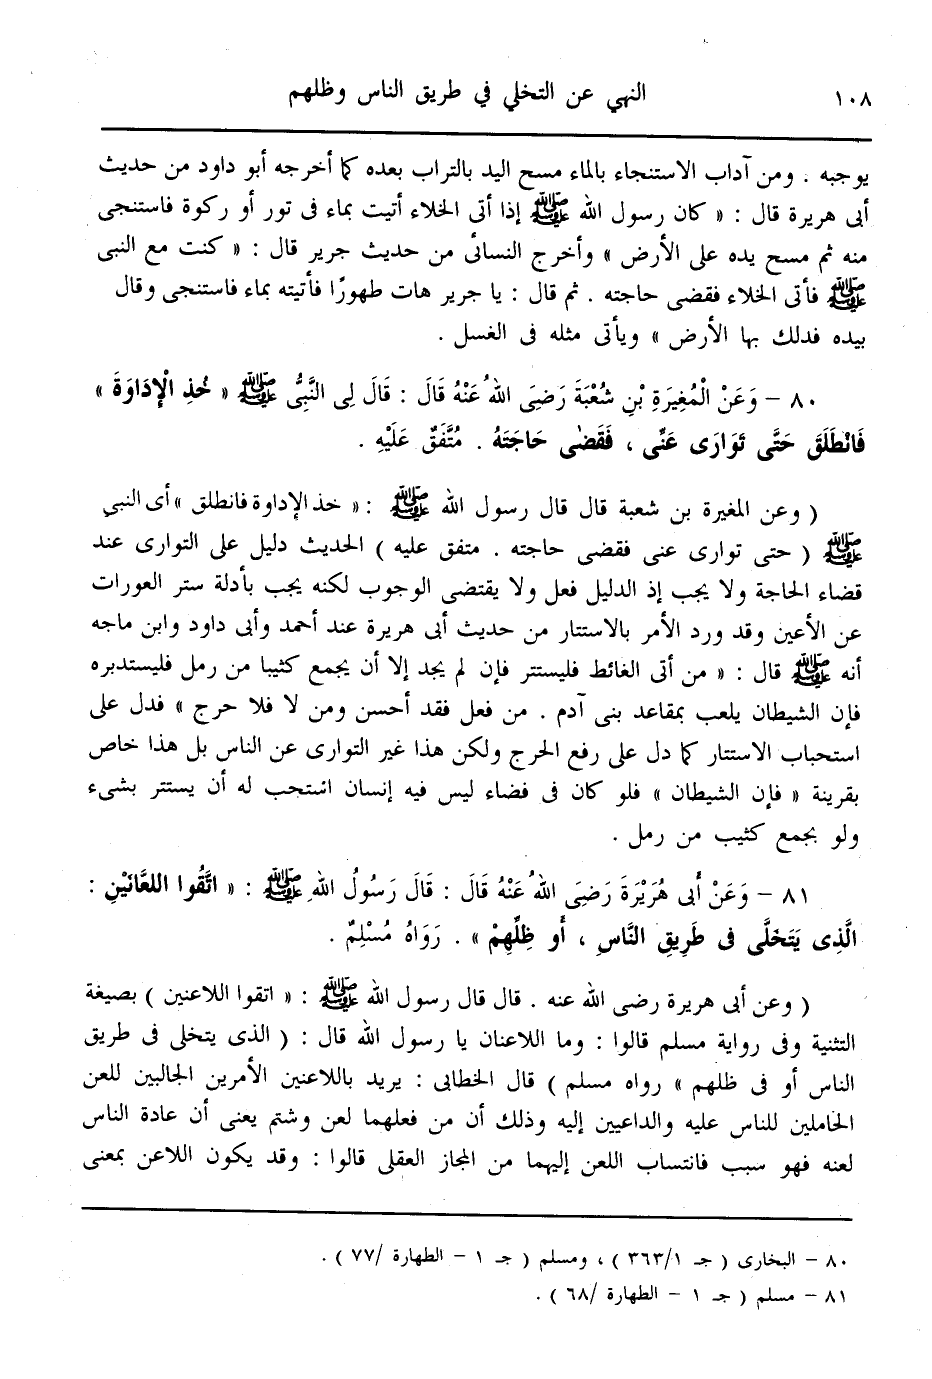 ١٠٨ النهي عن التخلي في طريق الناس وظلهم
يوجبه . ومن آداب الاستنجاء بالماء مسح اليد بالتراب بعده كما أخرجه أبو داود من حديث
أبى هريرة قال : « كان رسول الله ﷺ إذا أتى الخلاء أتيت بماء فى تور أو ركوة فاستنجى
منه ثم مسح يده على الأرض » وأخرج النسائى من حديث جرير قال : « كنت مع النبى
ﷺ فأتى الخلاء فقضى حاجته . ثم قال : يا جرير هات طهورًا فأتيته بماء فاستنجى وقال
بيده فدلك بها الأرض » ويأتى مثله فى الغسل .
٨٠ – وَعَنْ الْمُغِيرَةِ بْنِ شُعْبَةَ رَضِىَ اللهُ عَنْهُ قَالَ : قَالَ لِى النَّبِىُّ ﷺ « خُذِ الْإِدَاوَةَ »
فَانْطَلَقَ حَتَّى تَوَارَى عَنِّى ، فَقَضَى حَاجَتَهُ . مُتَّفَقٌ عَلَيْهِ .
( وعن المغيرة بن شعبة قال قال رسول الله ﷺ : « خذ الإداوة فانطلق » أى النبي
ﷺ ( حتى توارى عنى فقضى حاجته . متفق عليه ) الحديث دليل على التوارى عند
قضاء الحاجة ولا يجب إذ الدليل فعل ولا يقتضى الوجوب لكنه يجب بأدلة ستر العورات
عن الأعين وقد ورد الأمر بالاستتار من حديث أبى هريرة عند أحمد وأبى داود وابن ماجه
أنه ﷺ قال : « من أتى الغائط فليستتر فإن لم يجد إلا أن يجمع كثيبا من رمل فليستدبره
فإن الشيطان يلعب بمقاعد بنى آدم . من فعل فقد أحسن ومن لا فلا حرج » فدل على
استحباب الاستتار كما دل على رفع الحرج ولكن هذا غير التوارى عن الناس بل هذا خاص
بقرينة « فإن الشيطان » فلو كان فى فضاء ليس فيه إنسان استحب له أن يستتر بشىء
ولو بجمع كثيب من رمل .
٨١ – وَعَنْ أَبِى هُرَيْرَةَ رَضِىَ اللهُ عَنْهُ قَالَ : قَالَ رَسُولُ اللهِ ﷺ : « اتَّقُوا اللعَّانَيْنِ :
الَّذِى يَتَخَلَّى فى طَرِيقِ النَّاسِ ، أَو ظِلِّهِمْ » . رَوَاهُ مُسْلِمٌ .
( وعن أبى هريرة رضى الله عنه . قال قال رسول الله ﷺ : « اتقوا اللاعنين ) بصيغة
التثنية وفى رواية مسلم قالوا : وما اللاعنان يا رسول الله قال : ( الذى يتخلى فى طريق
الناس أو فى ظلهم » رواه مسلم ) قال الخطابى : يريد باللاعنين الأمرين الجالبين للعن
الحاملين للناس عليه والداعيين إليه وذلك أن من فعلهما لعن وشتم يعنى أن عادة الناس
لعنه فهو سبب فانتساب اللعن إليهما من المجاز العقلى قالوا : وقد يكون اللاعن بمعنى
٨٠ – البخارى ( جـ ٣٦٣/١ ) ، ومسلم ( جـ ١ – الطهارة /٧٧ ) .
٨١ – مسلم ( جـ ١ – الطهارة /٦٨ ) .